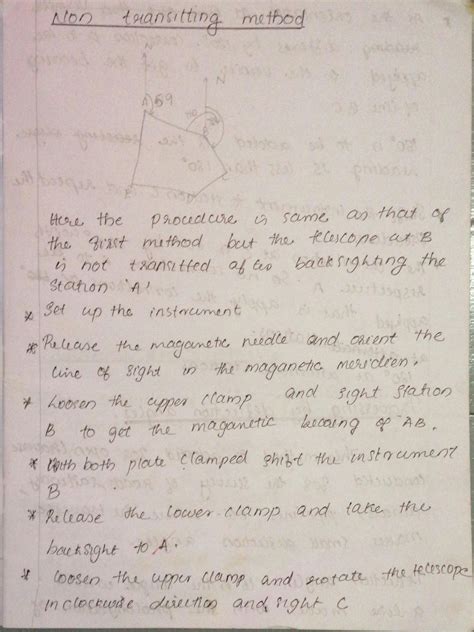 Non transitting method
A 59
B
Here the procedcure is same as that of
the first method but the telescope at B
is not transitted after backsighting the
station A!
* Set up the instrument
* Release the maganetic needle and orient the
line of sight in the maganetic meridien.
* Loosen the upper clamp and sight station
B to get the maganetic bearing of AB.
* With both plate clamped shift the instrument
B
* Release the lower clamp and take the
backsight to A.
* loosen the upper clamp and rotate the telescope
in clockwise direction and sight C